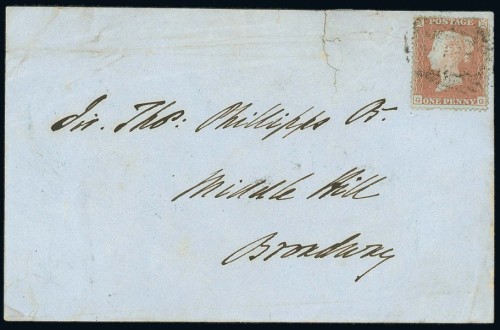 POSTAGE
ONE PENNY
Sir. Tho: Phillipps Bt.
Middle Hill
Broadway